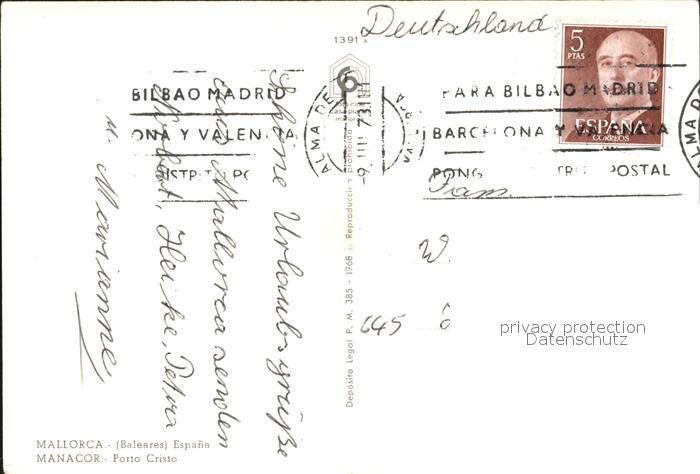 Deutschland
1391
5
PTAS
ESPAÑA
CORREOS
BILBAO MADRID
ONA Y VALENCIA
DISTRITO PO
PALMA DE
9 III 73
PARA BILBAO MADRID
BARCELONA Y VALENCIA
PONG DISTRITO POSTAL
ALMA
Schöne Urlaubsgrüße
aus Mallorca senden
Norbert, Heike, Petra
u. Marianne
Depósito Legal P. M. 385 - 1968 :: Reproducción prohibida
Fam.
W.
645
privacy protection
Datenschutz
MALLORCA.- (Baleares) España
MANACOR.- Porto Cristo